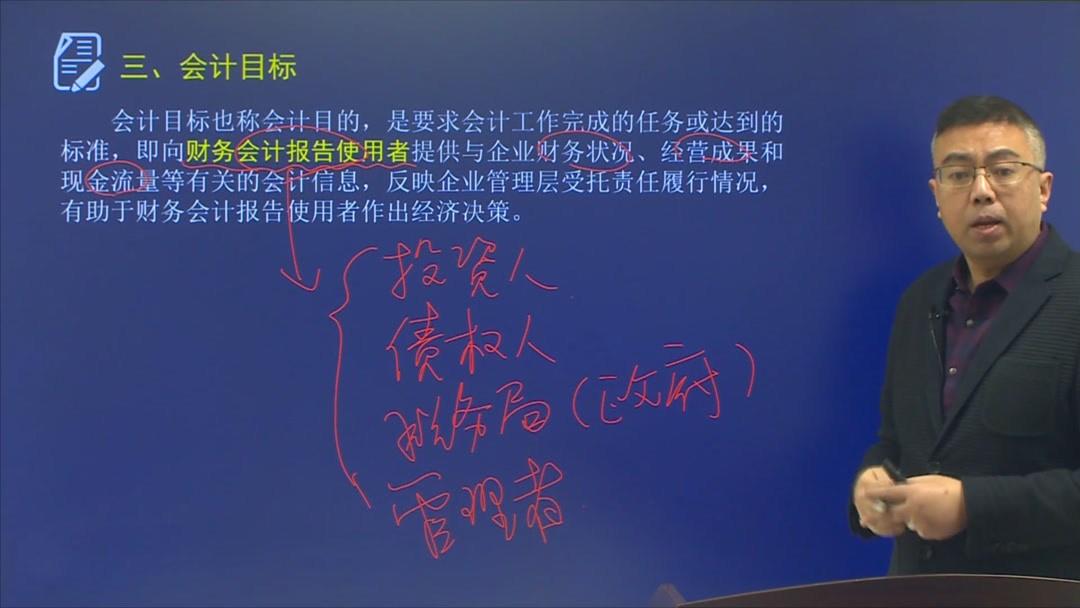 三、会计目标
会计目标也称会计目的，是要求会计工作完成的任务或达到的
标准，即向财务会计报告使用者提供与企业财务状况、经营成果和
现金流量等有关的会计信息，反映企业管理层受托责任履行情况，
有助于财务会计报告使用者作出经济决策。
投资人
债权人
税务局（政府）
管理者